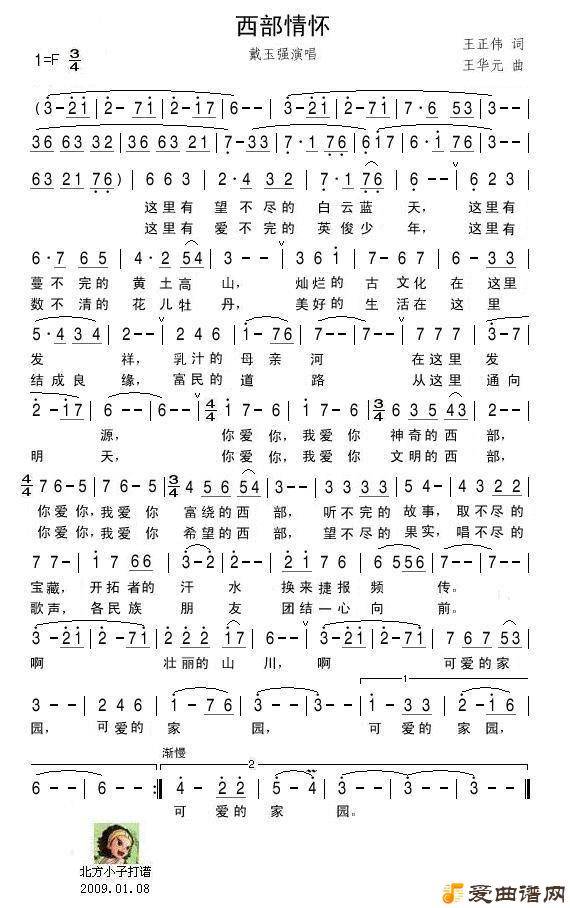 西部情怀
1=F 3/4
戴玉强演唱
王正伟 词
王华元 曲
(3-21|2-71|2-17|6--|3-21|2-71|7·6 53|3--|
36 63 32|36 63 21|7-33|7·1 76|617|6·1 76|3--|
63 21 76)|6 6 3|2·4 32|7·1 76|6--|6 2 3|
这里有 望不尽的 白云蓝 天, 这里有
这里有 爱不完的 英俊少 年, 这里有
6·7 65|4·2 54|3--|3 6 1|7·1 76|5 6 7|
蔓不完的 黄土高 山, 灿烂的 古文化 在这里
数不清的 花儿牡 丹, 美好的 生活在 这里
5·4 34|2--|2 4 6|1-76|7--|7 7 7|3-7|
发 祥, 乳汁的 母亲河 在这里 发
结成良 缘, 富民的 道 路 从这里 通向
2-17|6--|6--|4/4 1 7 6-|1 7 6-|3/4 6 63 5 43|2--|
源, 你爱你,我爱你 神奇的西 部,
明 天, 你爱你,我爱你 文明的西 部,
4/4 7 6 6-5-|7 6-5-|3/4 4 56 5 54|3--|3 33 3 3|4 32 2 2|
你爱你,我爱你 富绕的西 部, 听不完的 故事,取不尽的
你爱你,我爱你 希望的西 部, 望不尽的 果实,唱不尽的
7 7-|17 66|3-2|2--|2 1 76|6 5556|7--|
宝藏, 开拓者的 汗 水 换来捷报 频 传。
歌声, 各民族 朋 友 团结一心向 前。
3-21|2-71|2 22 2 17|6--|3-21|2-71|7 67 53|
啊 壮丽的山 川,啊 可爱的家
3--|2 4 6|1-76|3--|3--|1-33|2-16|
园, 可爱的 家 园, 可爱的 家园,
渐慢
6--|6--:|4-22|2--|5-4|3--|3--||
可 爱的 家 园。
北方小子打谱
2009.01.08
爱曲谱网